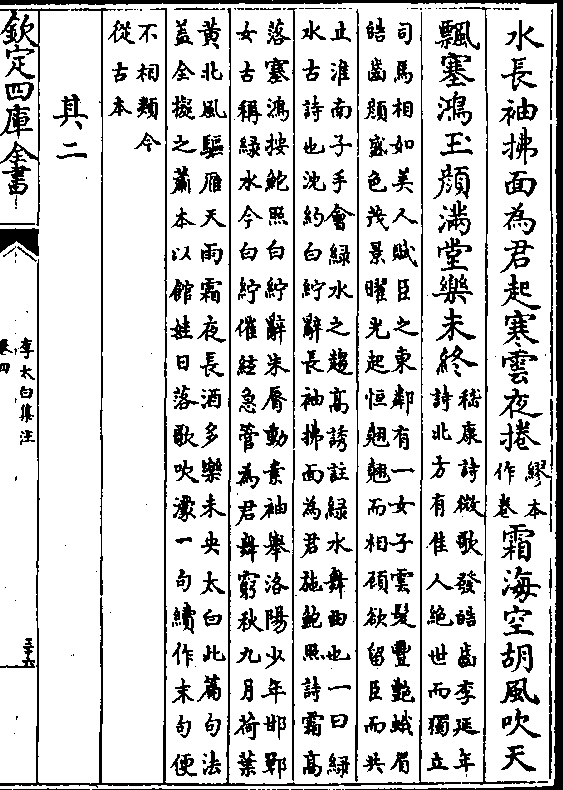 水長袖拂面為君起寒雲夜捲繆本作卷霜海空胡風吹天
飄塞鴻玉顔滿堂樂未終嵇康詩微歌發皓齒李延年
詩北方有佳人絶世而獨立
司馬相如美人賦臣之東鄰有一女子雲髮豐艶蛾眉
皓齒顔盛色茂景曜光起恒翹翹而相顧欲留臣而共
止淮南子手會緑水之趨高誘註緑水舞曲也一曰緑
水古詩也沈約白紵辭長袖拂面為君施鮑照詩霜髙
落塞鴻按鮑照白紵辭朱脣動素袖舉洛陽少年邯鄲
女古稱緑水今白紵催絃急管為君舞窮秋九月荷葉
黄北風驅雁天雨霜夜長酒多樂未央太白此篇句法
蓋全擬之蕭本以館娃日落歌吹濛一句續作末句便
不相類今
從古本
其二
欽定四庫全書
李太白集注
卷四
三十六